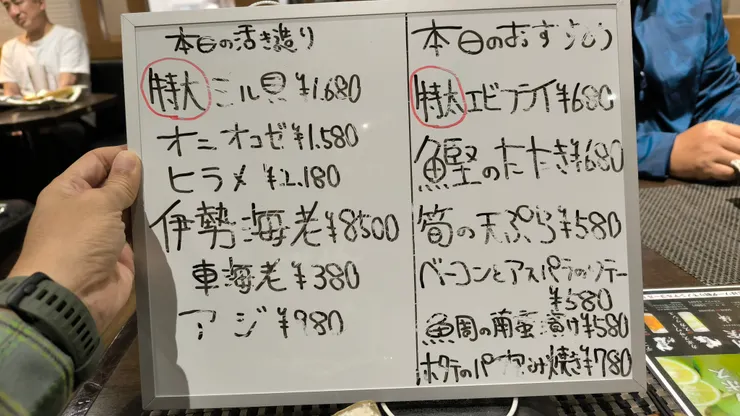 本日の活き造り
特大 ミル貝 ¥1.680
オニオコゼ ¥1.580
ヒラメ ¥2.180
伊勢海老 ¥8500
車海老 ¥380
アジ ¥980
本日のおすすめ
特大 エビフライ ¥680
鰹のたたき ¥680
筍の天ぷら ¥580
ベーコンとアスパラのソテー
¥580
¥580
ホタテの 焼き ¥780